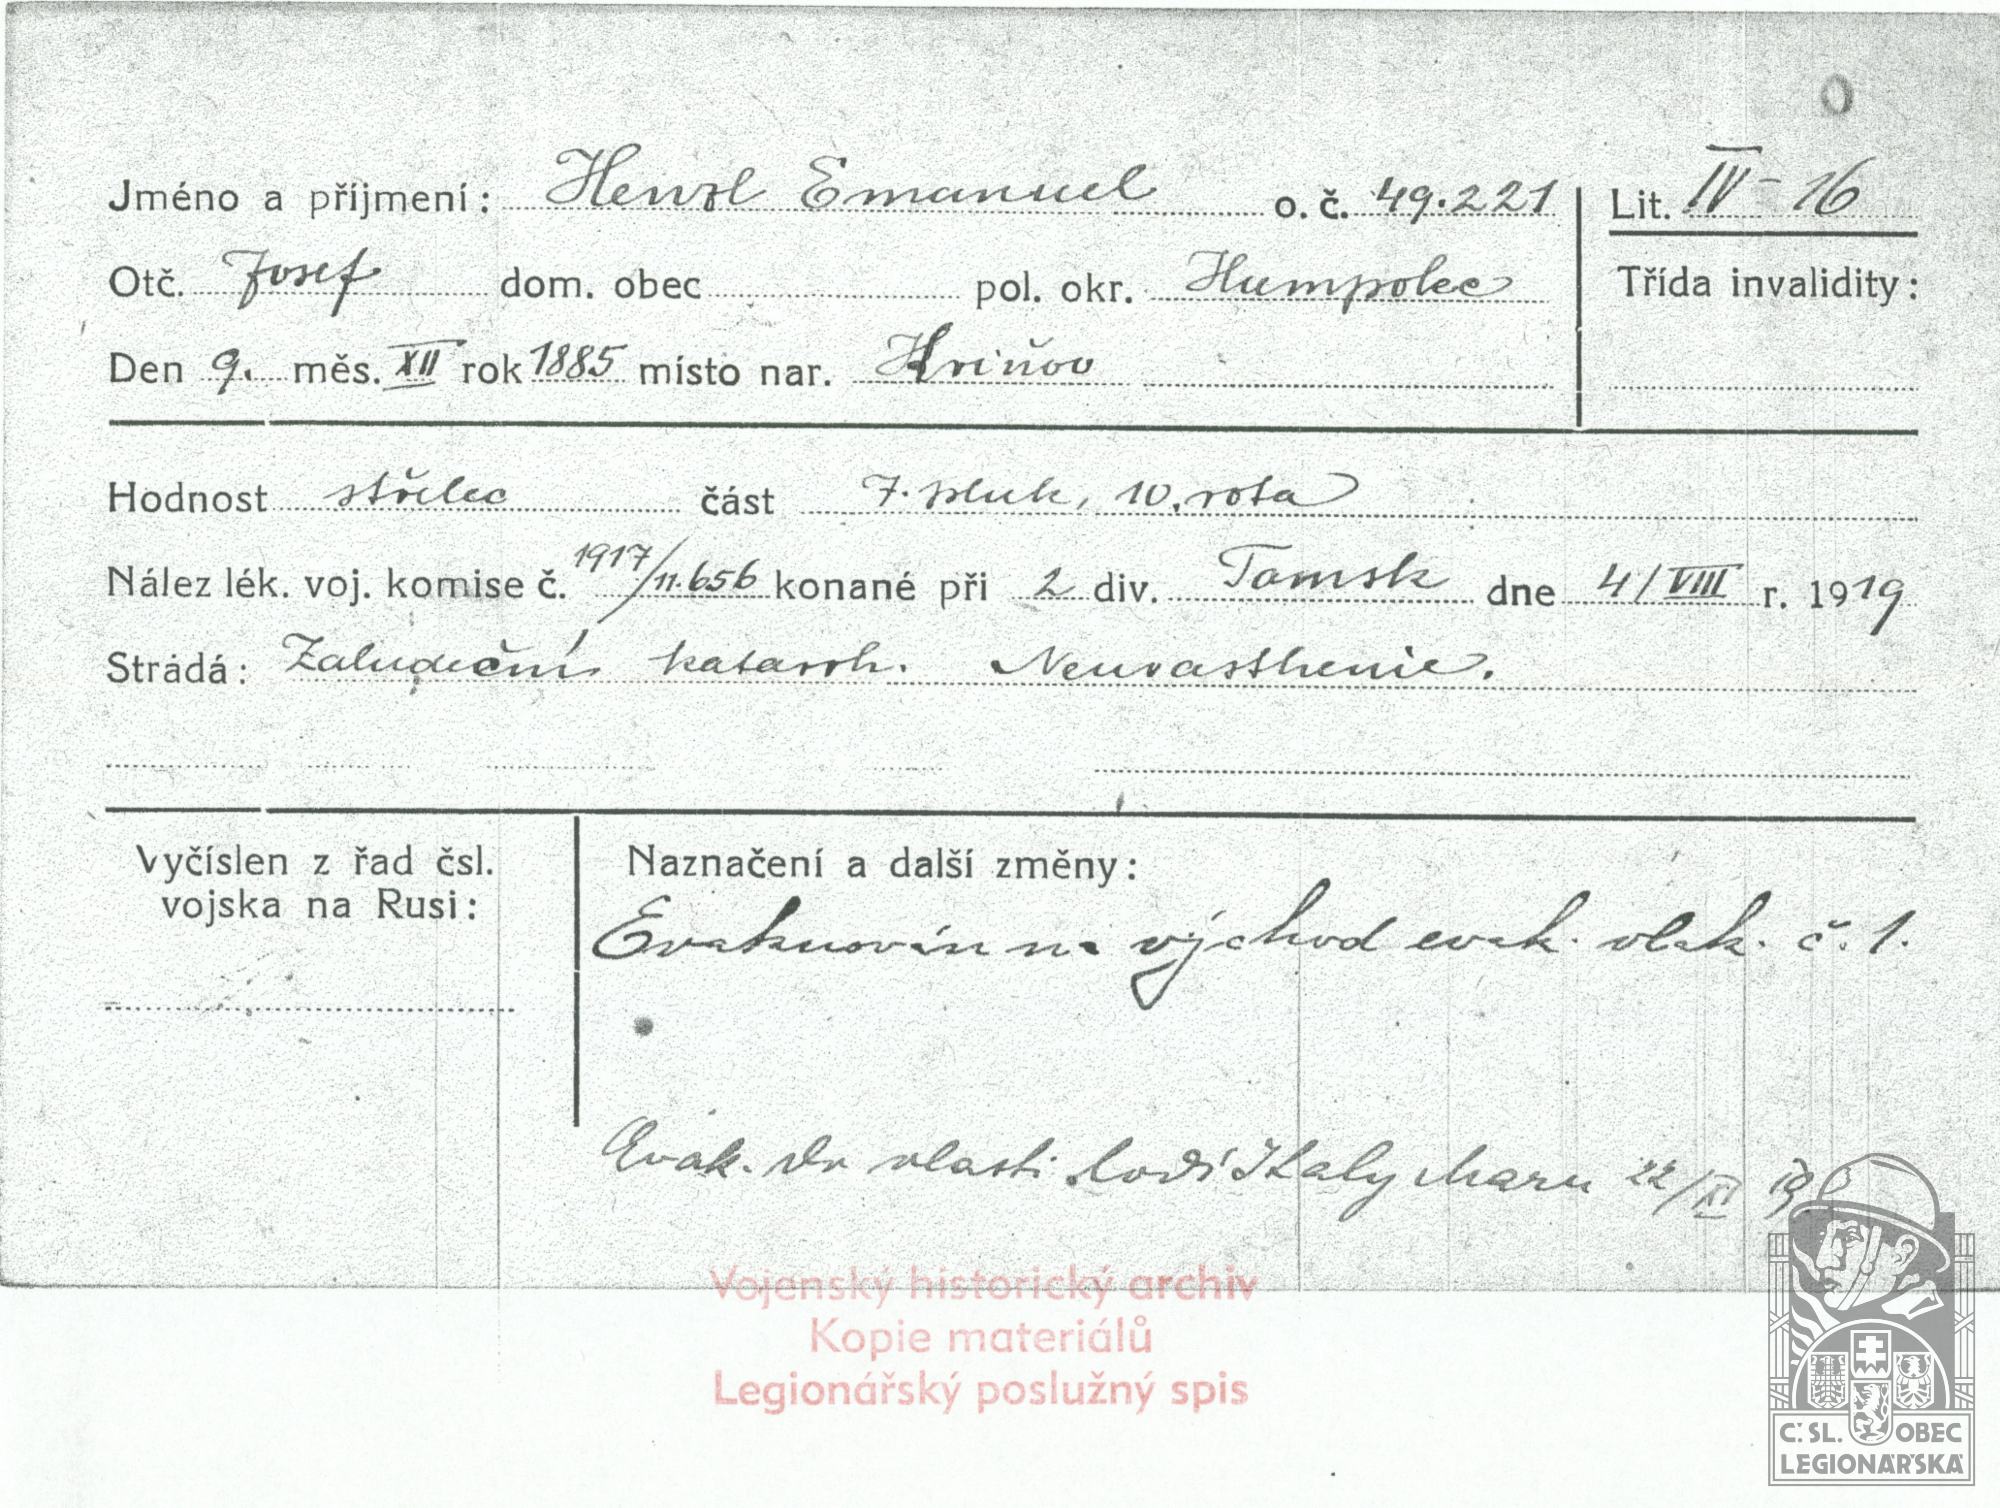 O
Jméno a příjmení: Henzl Emanuel o. č. 49.221 Lit. IV - 16
Otč. Josef dom. obec pol. okr. Humpolec Třída invalidity:
Den 9. měs. XII rok 1885 místo nar. Hviňov
Hodnost střelec část 7. pluk, 10. rota
Nález lék. voj. komise č. 1917/11.656 konané při 2 div. Tomsk dne 4/VIII r. 1919
Strádá: Žaludeční katarrh. Neurasthenie.
Vyčíslen z řad čsl. vojska na Rusi:
Naznačení a další změny:
Evakuován na východ evak. vlak. č. 1.
Evak. do vlasti lodí Italy Maru 22/XI
Vojenský historický archiv
Kopie materiálů
Legionářský poslužný spis
Č. SL. OBEC
LEGIONÁŘSKÁ